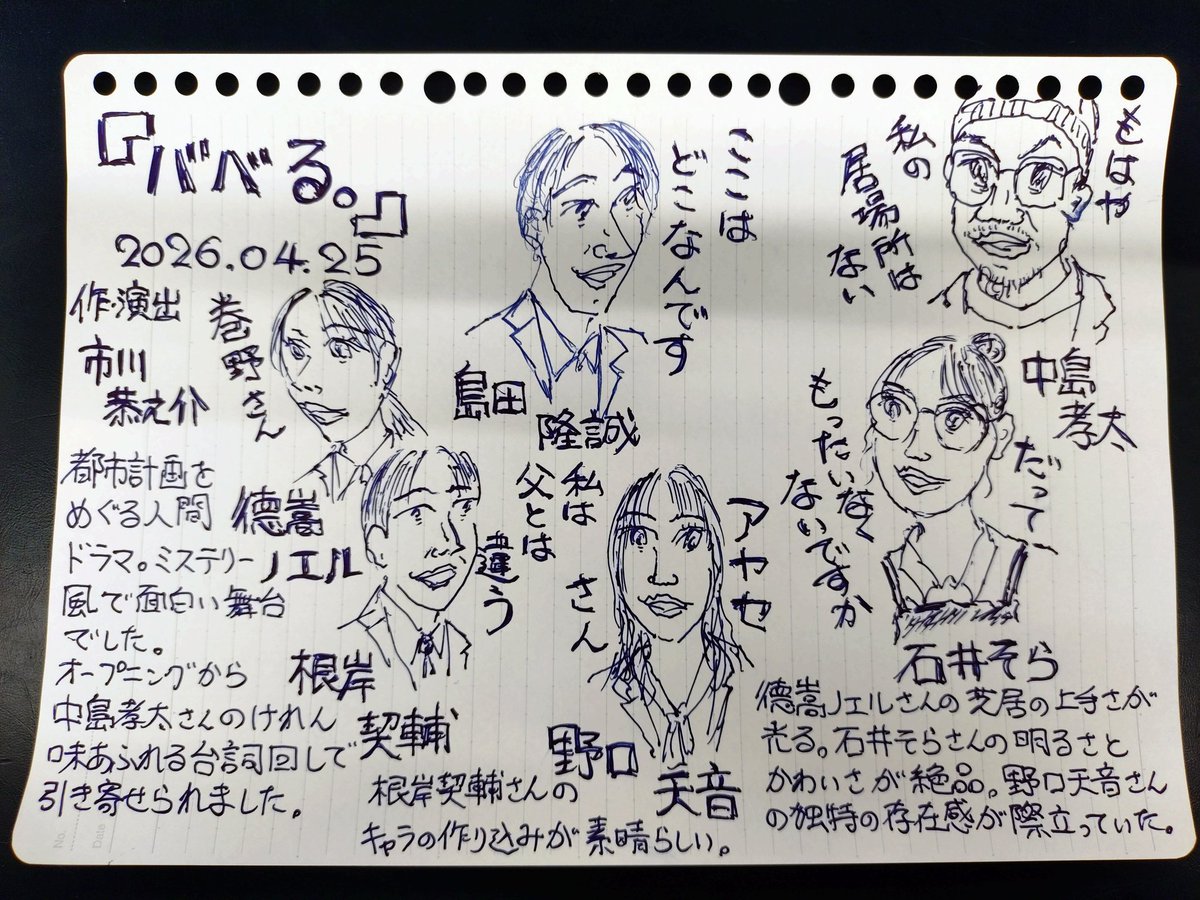 『バベる。』
2026.04.25
作・演出
市川
恭之介
巻野さん
徳嵩
ノエル
都市計画を
めぐる人間
ドラマ。ミステリー
風で面白い舞台
でした。
オープニングから
中島孝太さんのけれん
味あふれる台詞回しで
引き寄せられました。
ここは
どこなんです
島田
隆誠
もはや
私の
居場所は
ない
中島
孝太
私は
父とは
違う
根岸
契輔
根岸契輔さんの
キャラの作り込みが素晴らしい。
アヤセ
さん
野口
天音
だって
もったいなく
ないですか
石井そら
徳嵩ノエルさんの芝居の上手さが
光る。石井そらさんの明るさと
かわいさが絶品。野口天音さん
の独特の存在感が際立っていた。
No.
Date